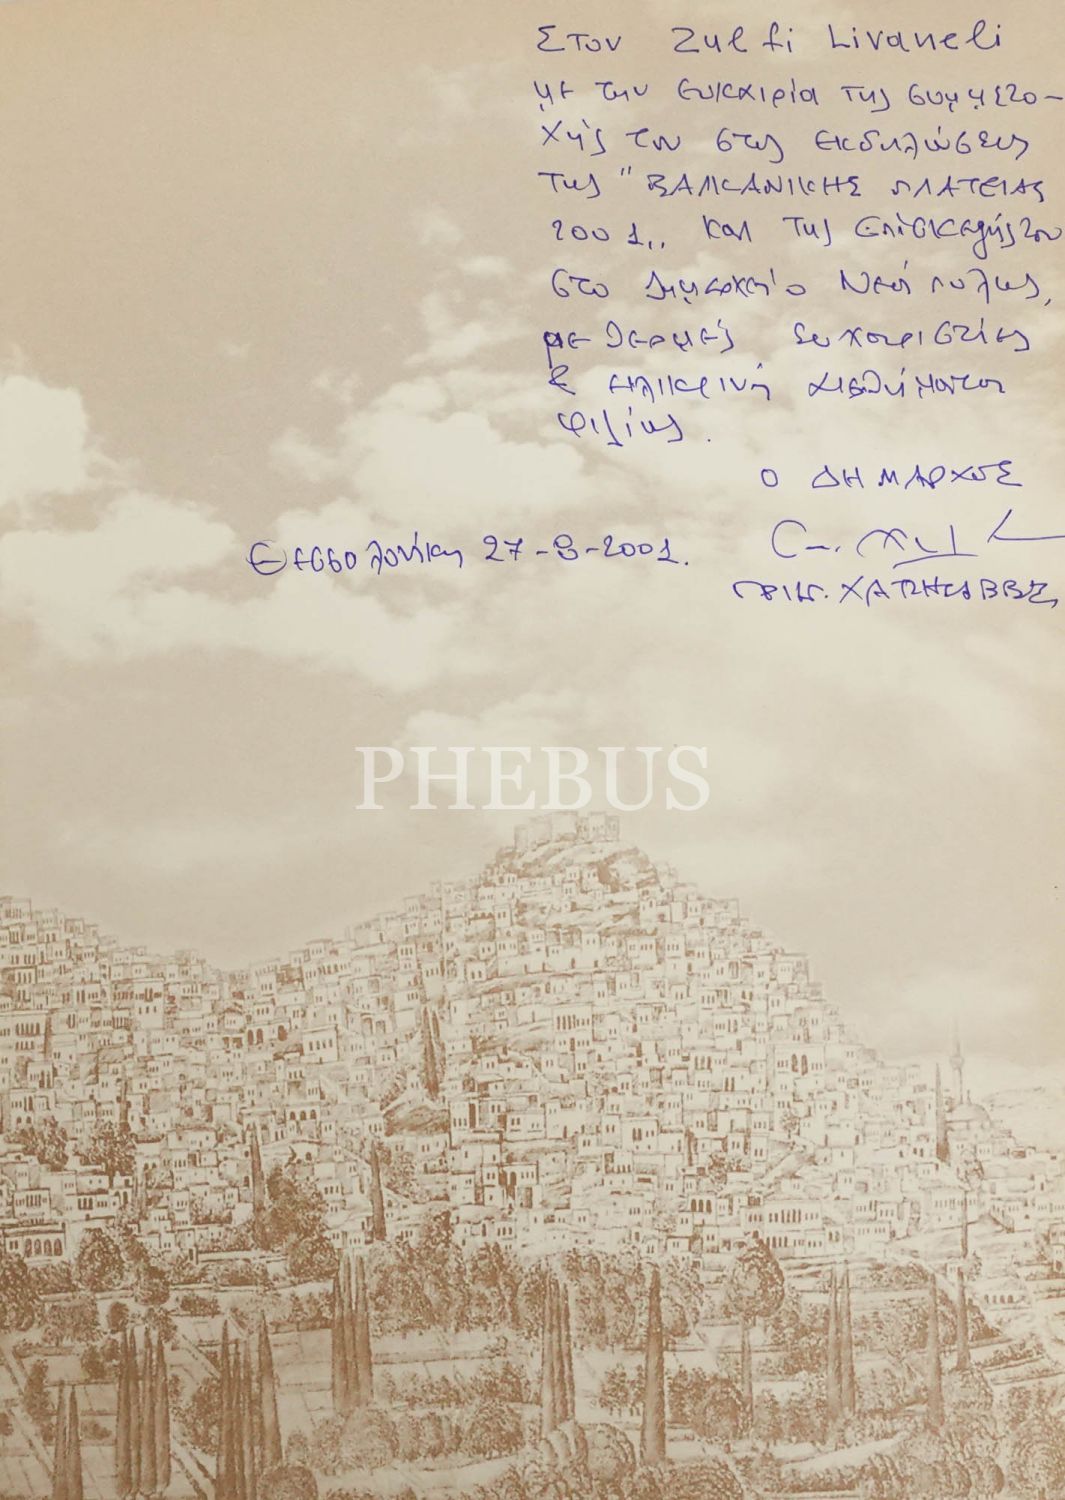 Στον Zulfi Livaneli
με την ευκαιρία της συμμετο-
χής του στις εκδηλώσεις
της "ΒΑΛΚΑΝΙΚΗΣ ΠΛΑΤΕΙΑΣ
2001,, και της επίσκεψής του
στο Δημαρχείο Νεάπολης,
με θερμές ευχαριστίες
& ειλικρινή αισθήματα
φιλίας.
Ο ΔΗΜΑΡΧΟΣ
Θεσσαλονίκη 27-8-2001.
ΧΑΤΖΗΣΑΒΒΑΣ
PHEBUS